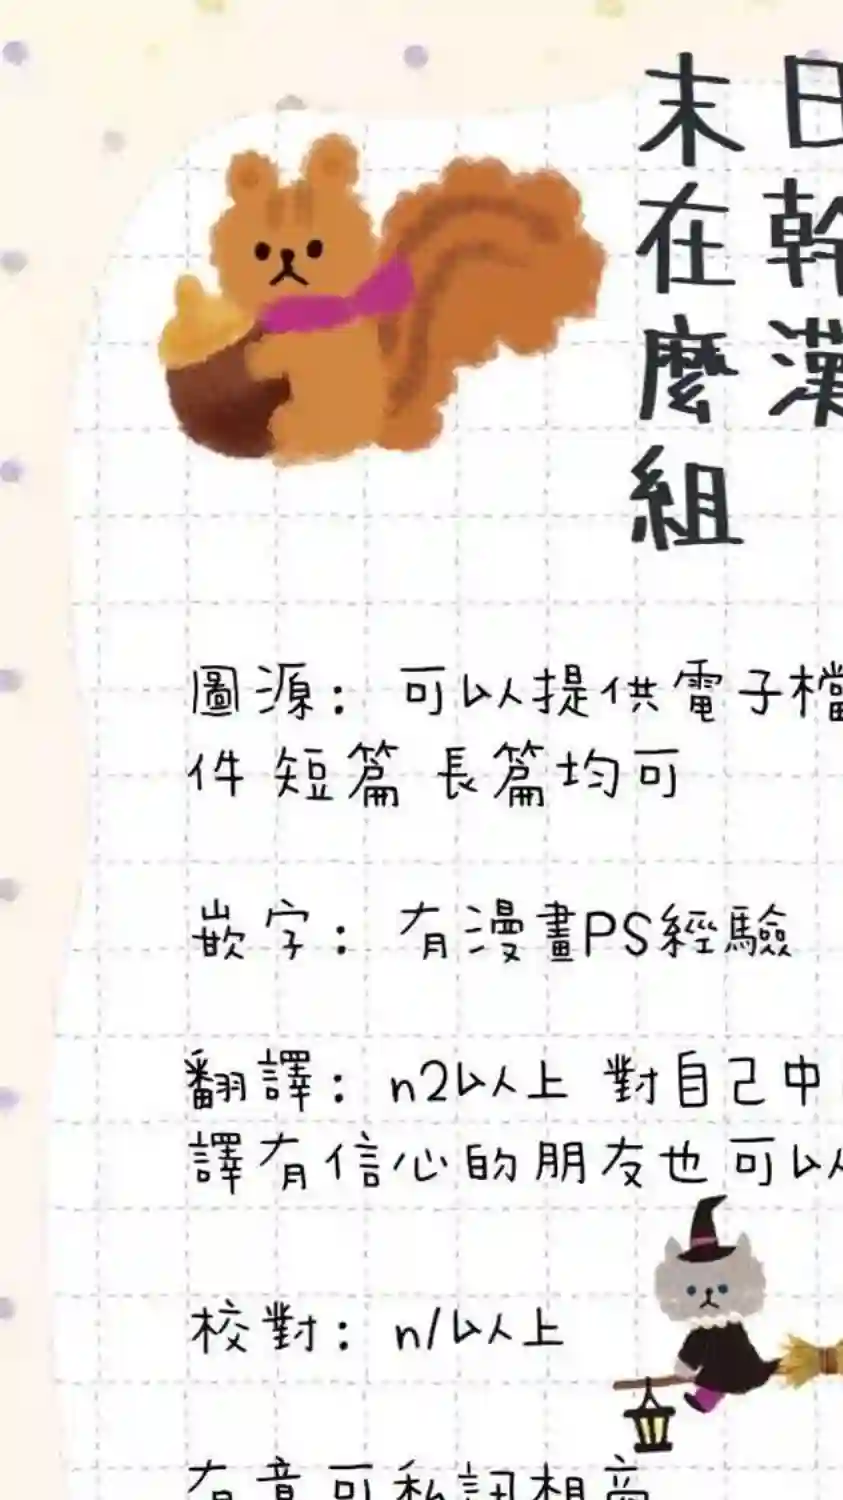 日幹漢
末在麼組
圖源：可以提供電子檔
件 短篇 長篇均可
嵌字：有漫畫PS經驗
翻譯：n2以上 對自己中
譯有信心的朋友也可以
校對：n1以上
有意可私訊相商